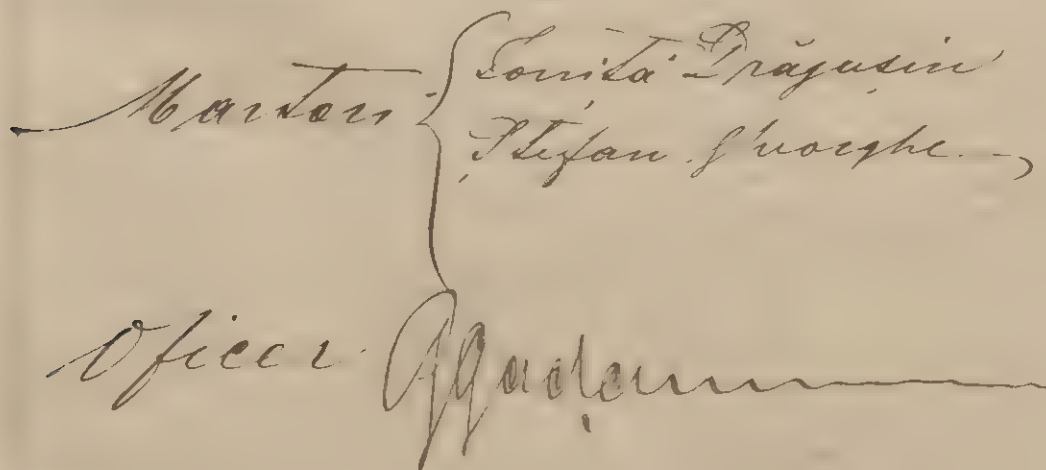 Martori Ioniță Drăgușin
Ștefan Gheorghe
Oficer